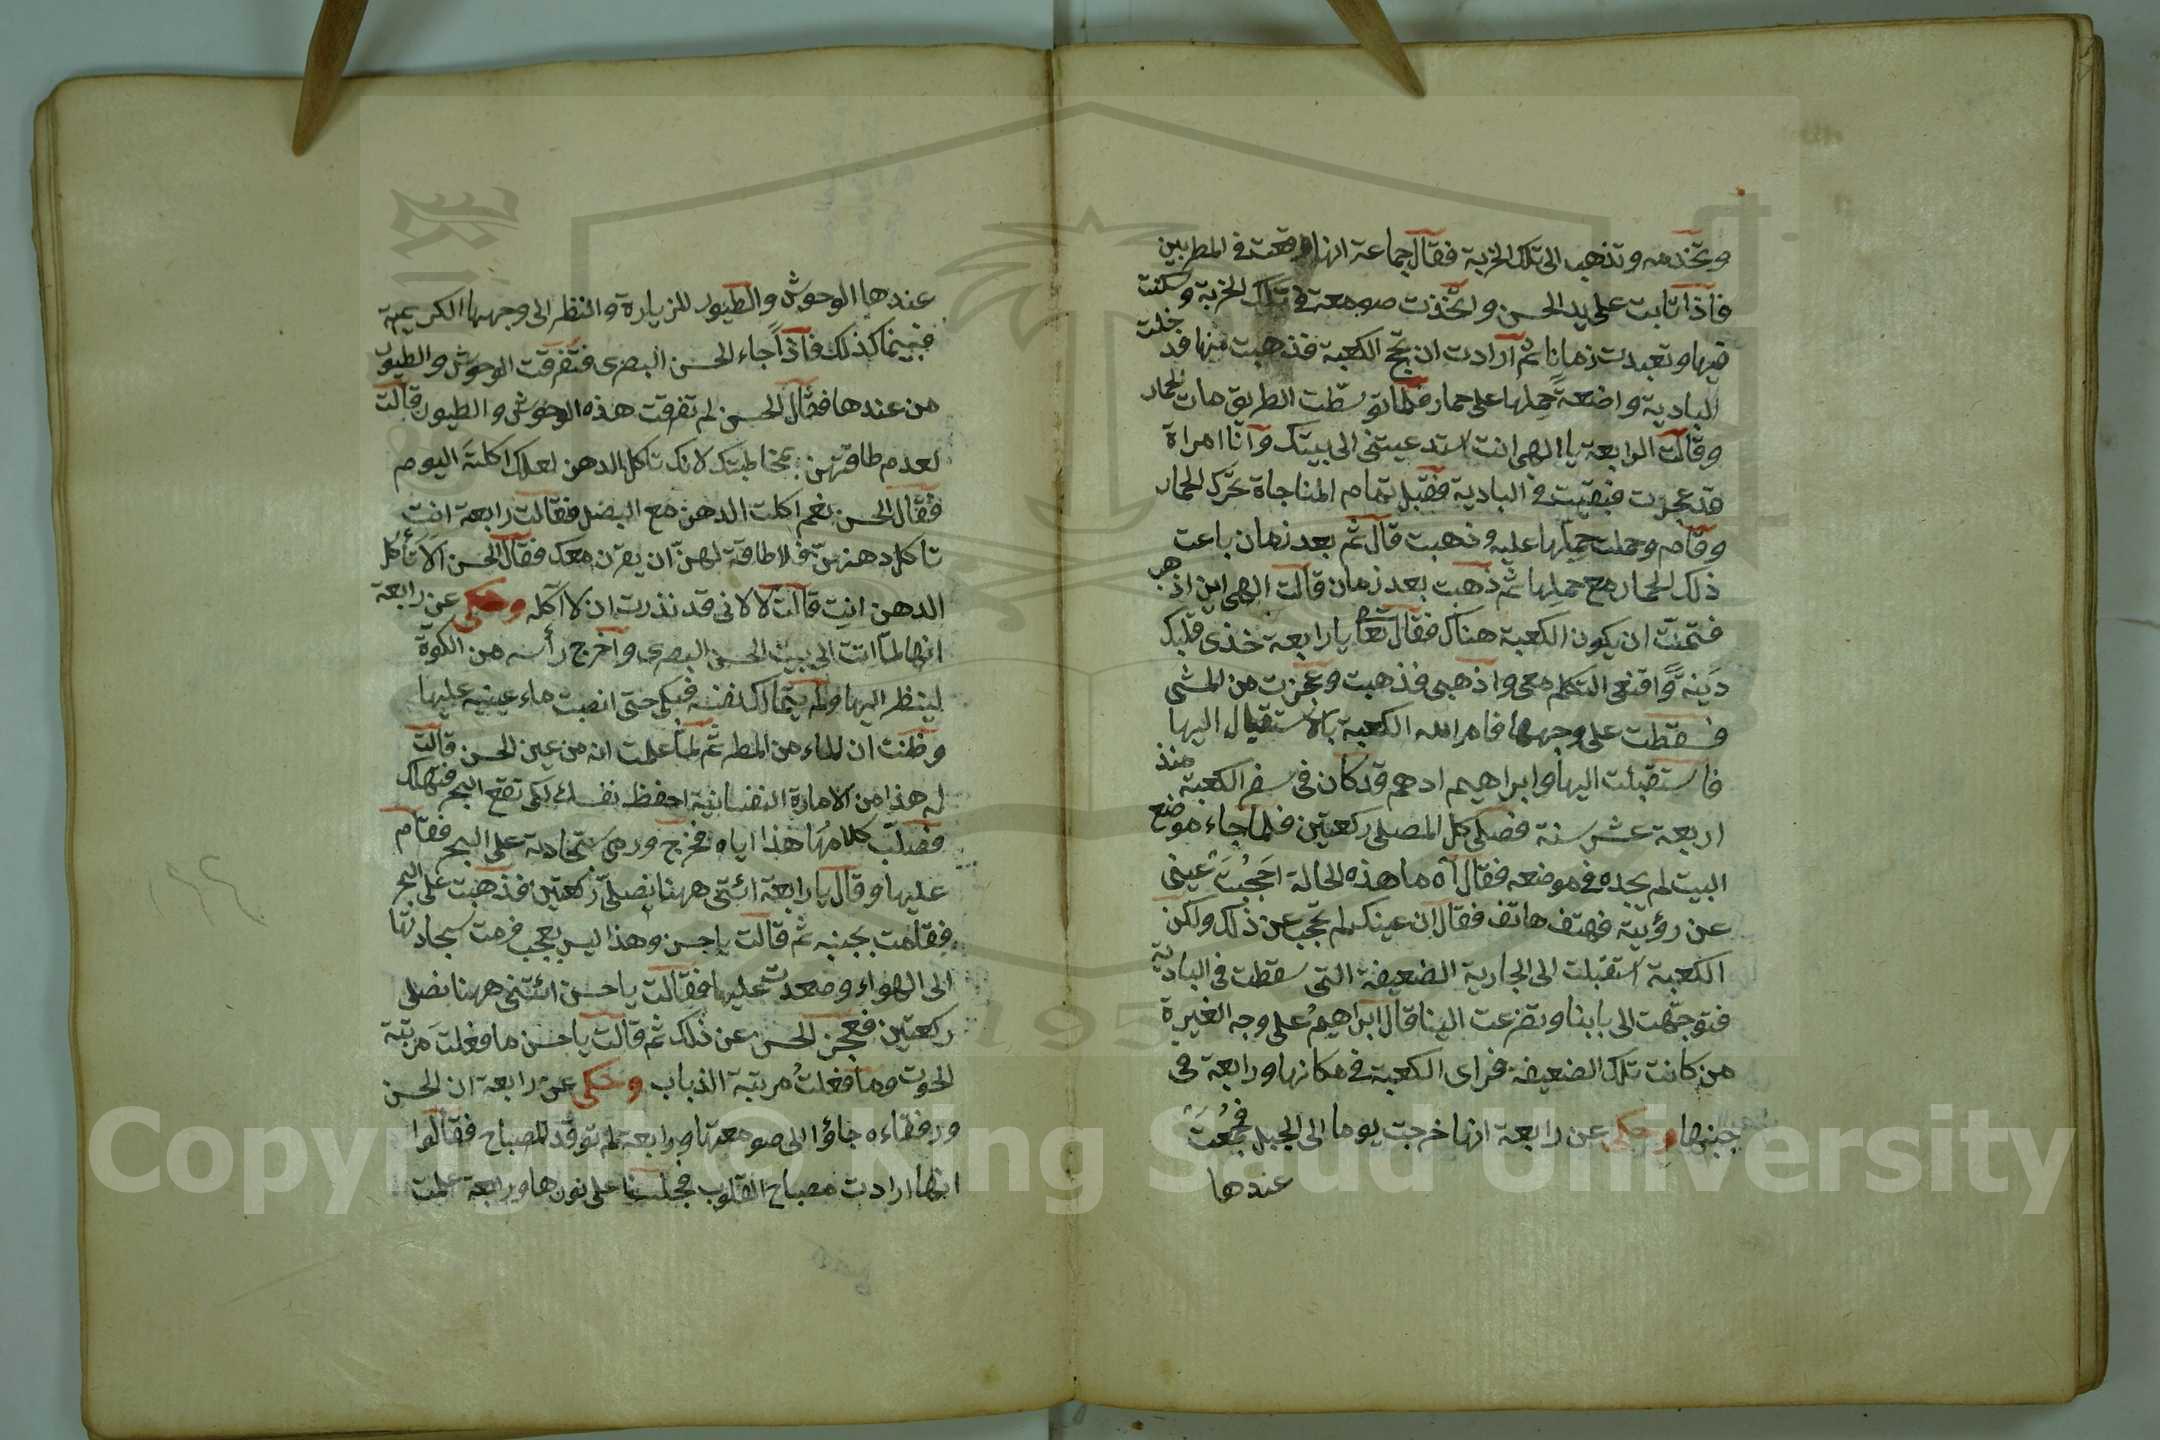 وتخدمه وتذهب الى تلك الخربة فقال جماعة انها وقعت في المطربين
فاذا تابت على يد الحسن واتخذت صومعة في تلك الخربة وسكنت
فيها وتعبدت زمانا ثم ارادت ان تحج الكعبة فذهبت منها قد خلت
البادية واضعةً حملها على حمار فلما توسّطت الطريق مات الحمار
وقالت الرابعة يا الهى انت استدعيتنى الى بيتك وانا امراة
قد عجزت فبقيت في البادية فقبل تمام المناجاة تحرّك الحمار
وقام وحملت حملها عليه وذهبت قال ثم بعد زمان باعت
ذلك الحمار مع حملها ثم ذهبت بعد زمان قالت الهى اين اذهب
فتمنّت ان يكون الكعبة هناك فقال تعا يا رابعة خذى قلبك
دَينةً واقنعى التكلم معى واذهبى فذهبت وعجزت من المشى
فسقطت على وجهها فامر الله الكعبة بالاستقبال اليها
فاستقبلت اليها وابراهيم ادهم قد كان فى سفر الكعبة منذ
اربعة عشر سنة فصلى كل المصلى ركعتين فلما جاء موضع
البيت لم يجده في موضعه فقال آه ما هذه الحالة احَجُبَتْ عينى
عن رؤيته فهتف هاتف فقال ان عينك لم تحجب عن ذلك ولكن
الكعبة استقبلت الى الجارية الضعيفة التى سقطت في البادية
فتوجّهت الى بابنا وتضرعت الينا قال ابراهيمُ على وجه الغيرة
من كانت تلك الضعيفة فراى الكعبة في مكانها ورابعة فى
جنبها وحكى عن رابعة انها خرجت يوما الى الجبل فجُمِعَتْ
عندها
عندها الوحوش والطيور للزيارة والنظر الى وجهها الكريمة
فبينما كذلك فاذاً جاء الحسن البصرى فتفرقت الوحوش والطيور
من عندها فقال الحسن لم تفرقت هذه الوحوش والطيور قالت
لعدم طاقتهن بمخالبتك لانك تاكل الدهن لعلك اكلتَه اليوم
فقال الحسن نعم اكلت الدهن مع البصل فقالت رابعة انت
تاكل دهنهنّ فلا طاقة لهنّ ان يقرن معك فقال الحسن الا تأكل
الدهن انتِ قالت لا لانى قد نذرت ان لا آكله وحكى عن رابعة
انها لمّا اتت الى بيت الحسن البصرى واخرج رأسه من الكوّة
لينظر اليها ولم يتمالك نفسه فبكى حتى انصبت ماء عينيه عليها
وظنت ان الماء من المطر ثم لمّا علمت انه من عين الحسن قالت
له هذا من الامارة النفسانية احفظ نفسك لكى تقع البحر فتهلك
فصلّب كلامُها هذا اياه فخرج ورمى سجّادته على البحر فقام
عليها وقال يا رابعة ائتى ههنا نصلّى ركعتين فذهبت على البحر
فقامت بجنبه ثم قالت يا حسن وهذا ليس بعجب فرمت سجادتها
الى الهواء وصعدت عليها فقالت يا حسن ائتنى ههنا نصلى
ركعتين فعجز الحسن عن ذلك ثم قالت يا حسن ما فعلتَ مرتبة
الحوت وما فعلتُ مرتبة الذباب وحكى عن رابعة ان الحسن
ورفقاءه جاؤا الى صومعتها ورابعة لم توقد المصباح فقالوا
انها ارادت مصباح القلوب فجلسنا على نورها ورابعة علمت
Copyright © King Saud University
195